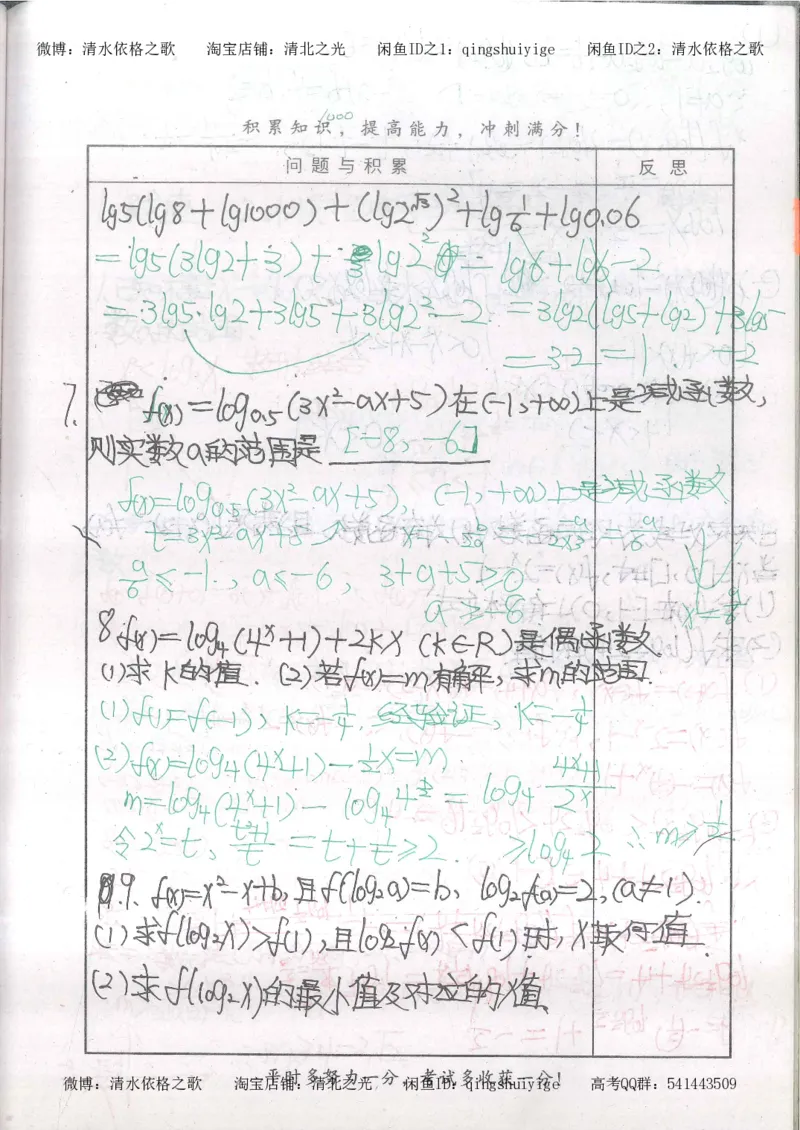 微博：清水依格之歌 淘宝店铺：清北之光 闲鱼ID之1：qingshuiyige 闲鱼ID之2：清水依格之歌
1000
积累知识，提高能力，冲刺满分！
问题与积累 反思
lg5(lg8+lg1000)+(lg2^√3)²+lg1/6+lg0.06
=lg5(3lg2+3)+3lg2² - lg6+lg6-2
=3lg5·lg2+3lg5+3lg2²-2 =3lg2(lg5+lg2)+3lg5
-2
=3-2=1
7. f(x)=log0.5(3x²-ax+5)在(-1,+∞)上是减函数,
则实数a的范围是 [-8,-6]
f(x)=log0.5(3x²-ax+5), (-1,+∞)上是减函数
t=3x²-ax+5 x=-b/2a = a/2×3 = a/6
a/6≤-1, a≤-6, 3+a+5≥0
a≥-8 x=a/6
8 f(x)=log4(4^x+1)+2kx (k∈R)是偶函数
(1)求k的值. (2)若f(x)=m有解,求m的范围.
(1)f(1)=f(-1), k=-1/4. 经验证, k=-1/4
(2)f(x)=log4(4^x+1)-1/2x=m
m=log4(4^x+1)-log4 4^x/2 = log4 4^x+1/2^x
令2^x=t, t²+1/t =t+1/t≥2. ≥log4 2 ∴m≥1/2
9. f(x)=x²-x+b,且f(log2a)=b, log2f(a)=2,(a≠1).
(1)求f(log2x)>f(1),且log2f(x)<f(1)时,x取何值.
(2)求f(log2x)的最小值及对应的x值.
平时多努力一分，考试多收获一分！
微博：清水依格之歌 淘宝店铺：清北之光 闲鱼ID：qingshuiyige 高考QQ群：541443509